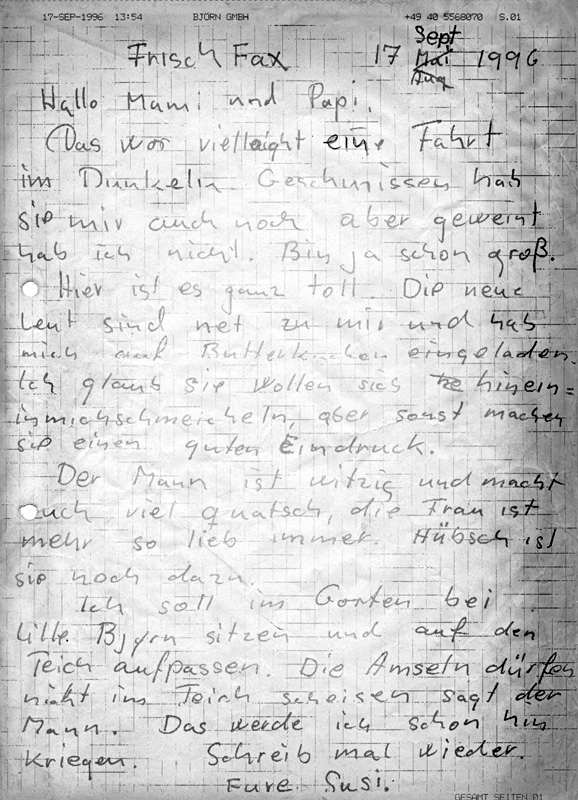 17-SEP-1996 13:54 BJÖRN GMBH +49 40 5568070 S.01
Frisch Fax 17 Sept 1996
Mai
Aug
Hallo Mami und Papi.
Das war vielleicht eine Fahrt
im Dunkeln. Geschmissen hab
sie mir auch noch aber geweint
hab ich nicht. Bin ja schon groß.
Hier ist es ganz toll. Die neue
Leut sind net zu mir und hab
mich auf Butterkuchen eingeladen.
Ich glaub sie wollen sich hinein=
inmichschmeicheln, aber sonst machen
sie einen guten Eindruck.
Der Mann ist witzig und macht
auch viel quatsch, die Frau ist
mehr so lieb immer. Hübsch ist
sie noch dazu.
Ich soll im Garten bei
Lille Bjyrn sitzen und auf den
Teich aufpassen. Die Amseln dürfen
nicht im Teich scheisen sagt der
Mann. Das werde ich schon hin
kriegen. Schreib mal wieder.
Eure Susi.
GESAMT SEITEN 01